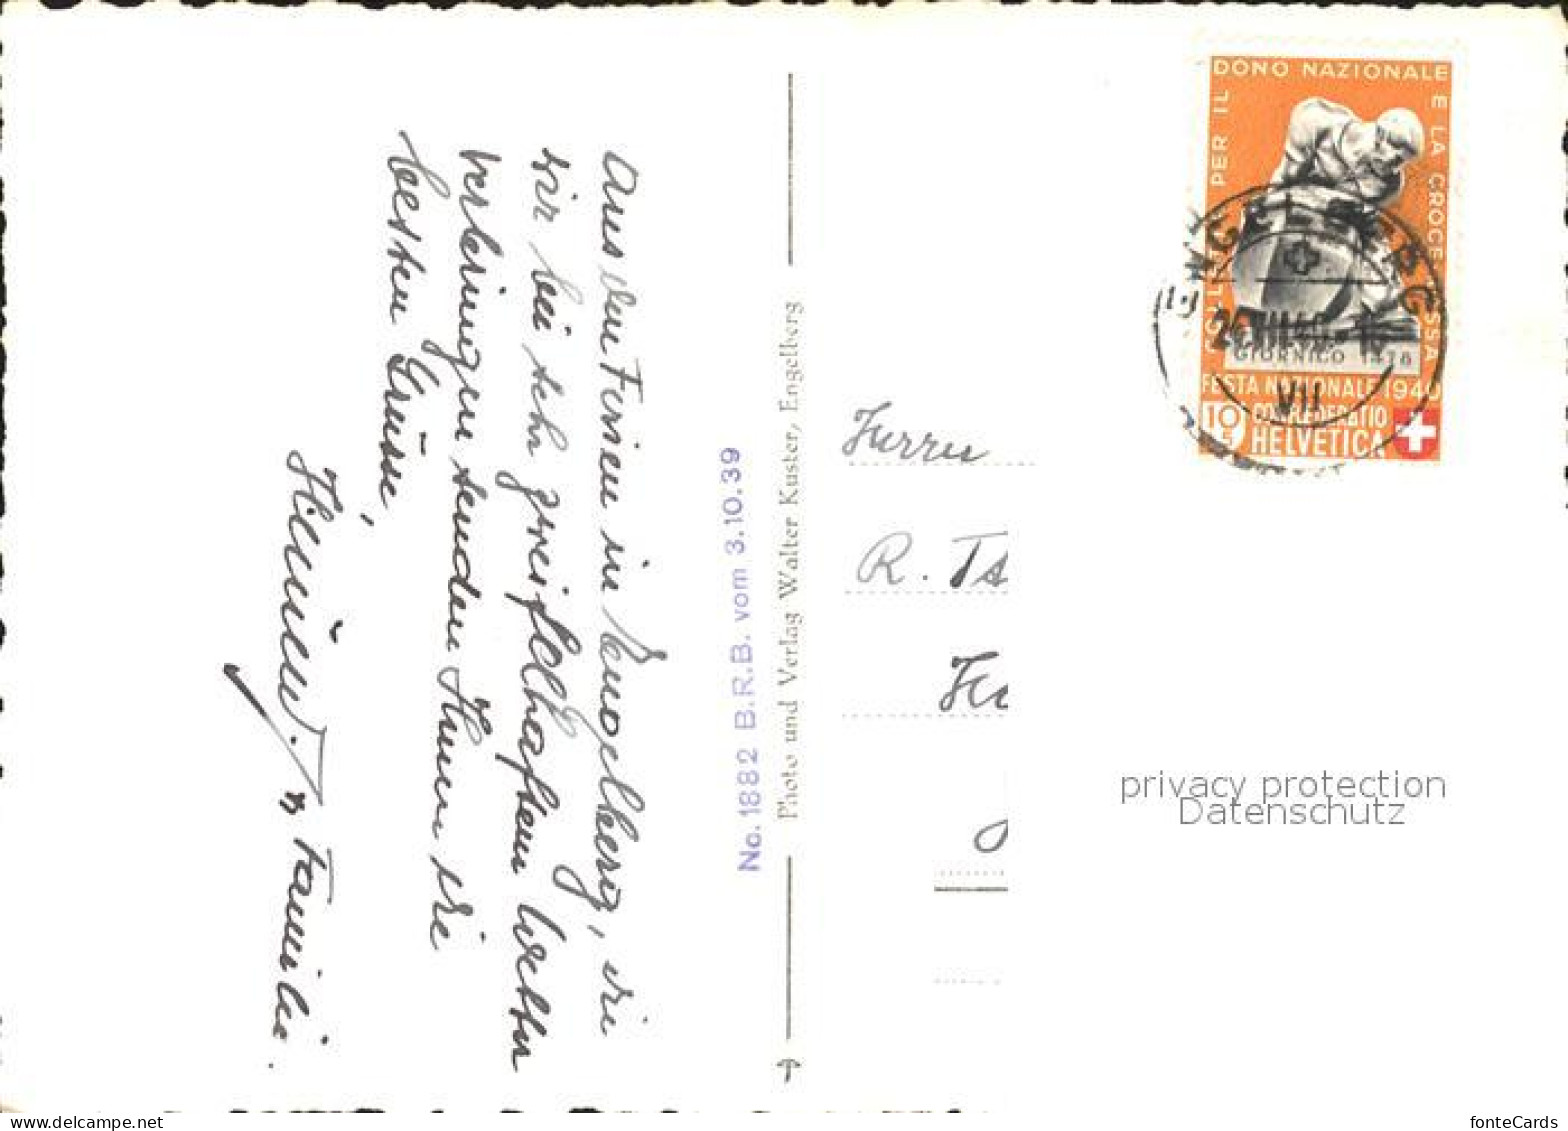 Aus den Ferien in Engelberg, die
wir bei sehr zweifelhaftem Wetter
verbringen senden Ihnen die
besten Grüsse,
u. Familie.
No. 1882 B.R.B. vom 3.10.39
Photo und Verlag Walter Kuster, Engelberg
Herrn
R. Ts
PER IL DONO NAZIONALE E LA CROCE ROSSA
GIORNICO 1478
FESTA NAZIONALE 1940
10
CONFOEDERATIO
HELVETICA
ENGELBERG
VII
privacy protection
Datenschutz
www.delcampe.net
fonteCards